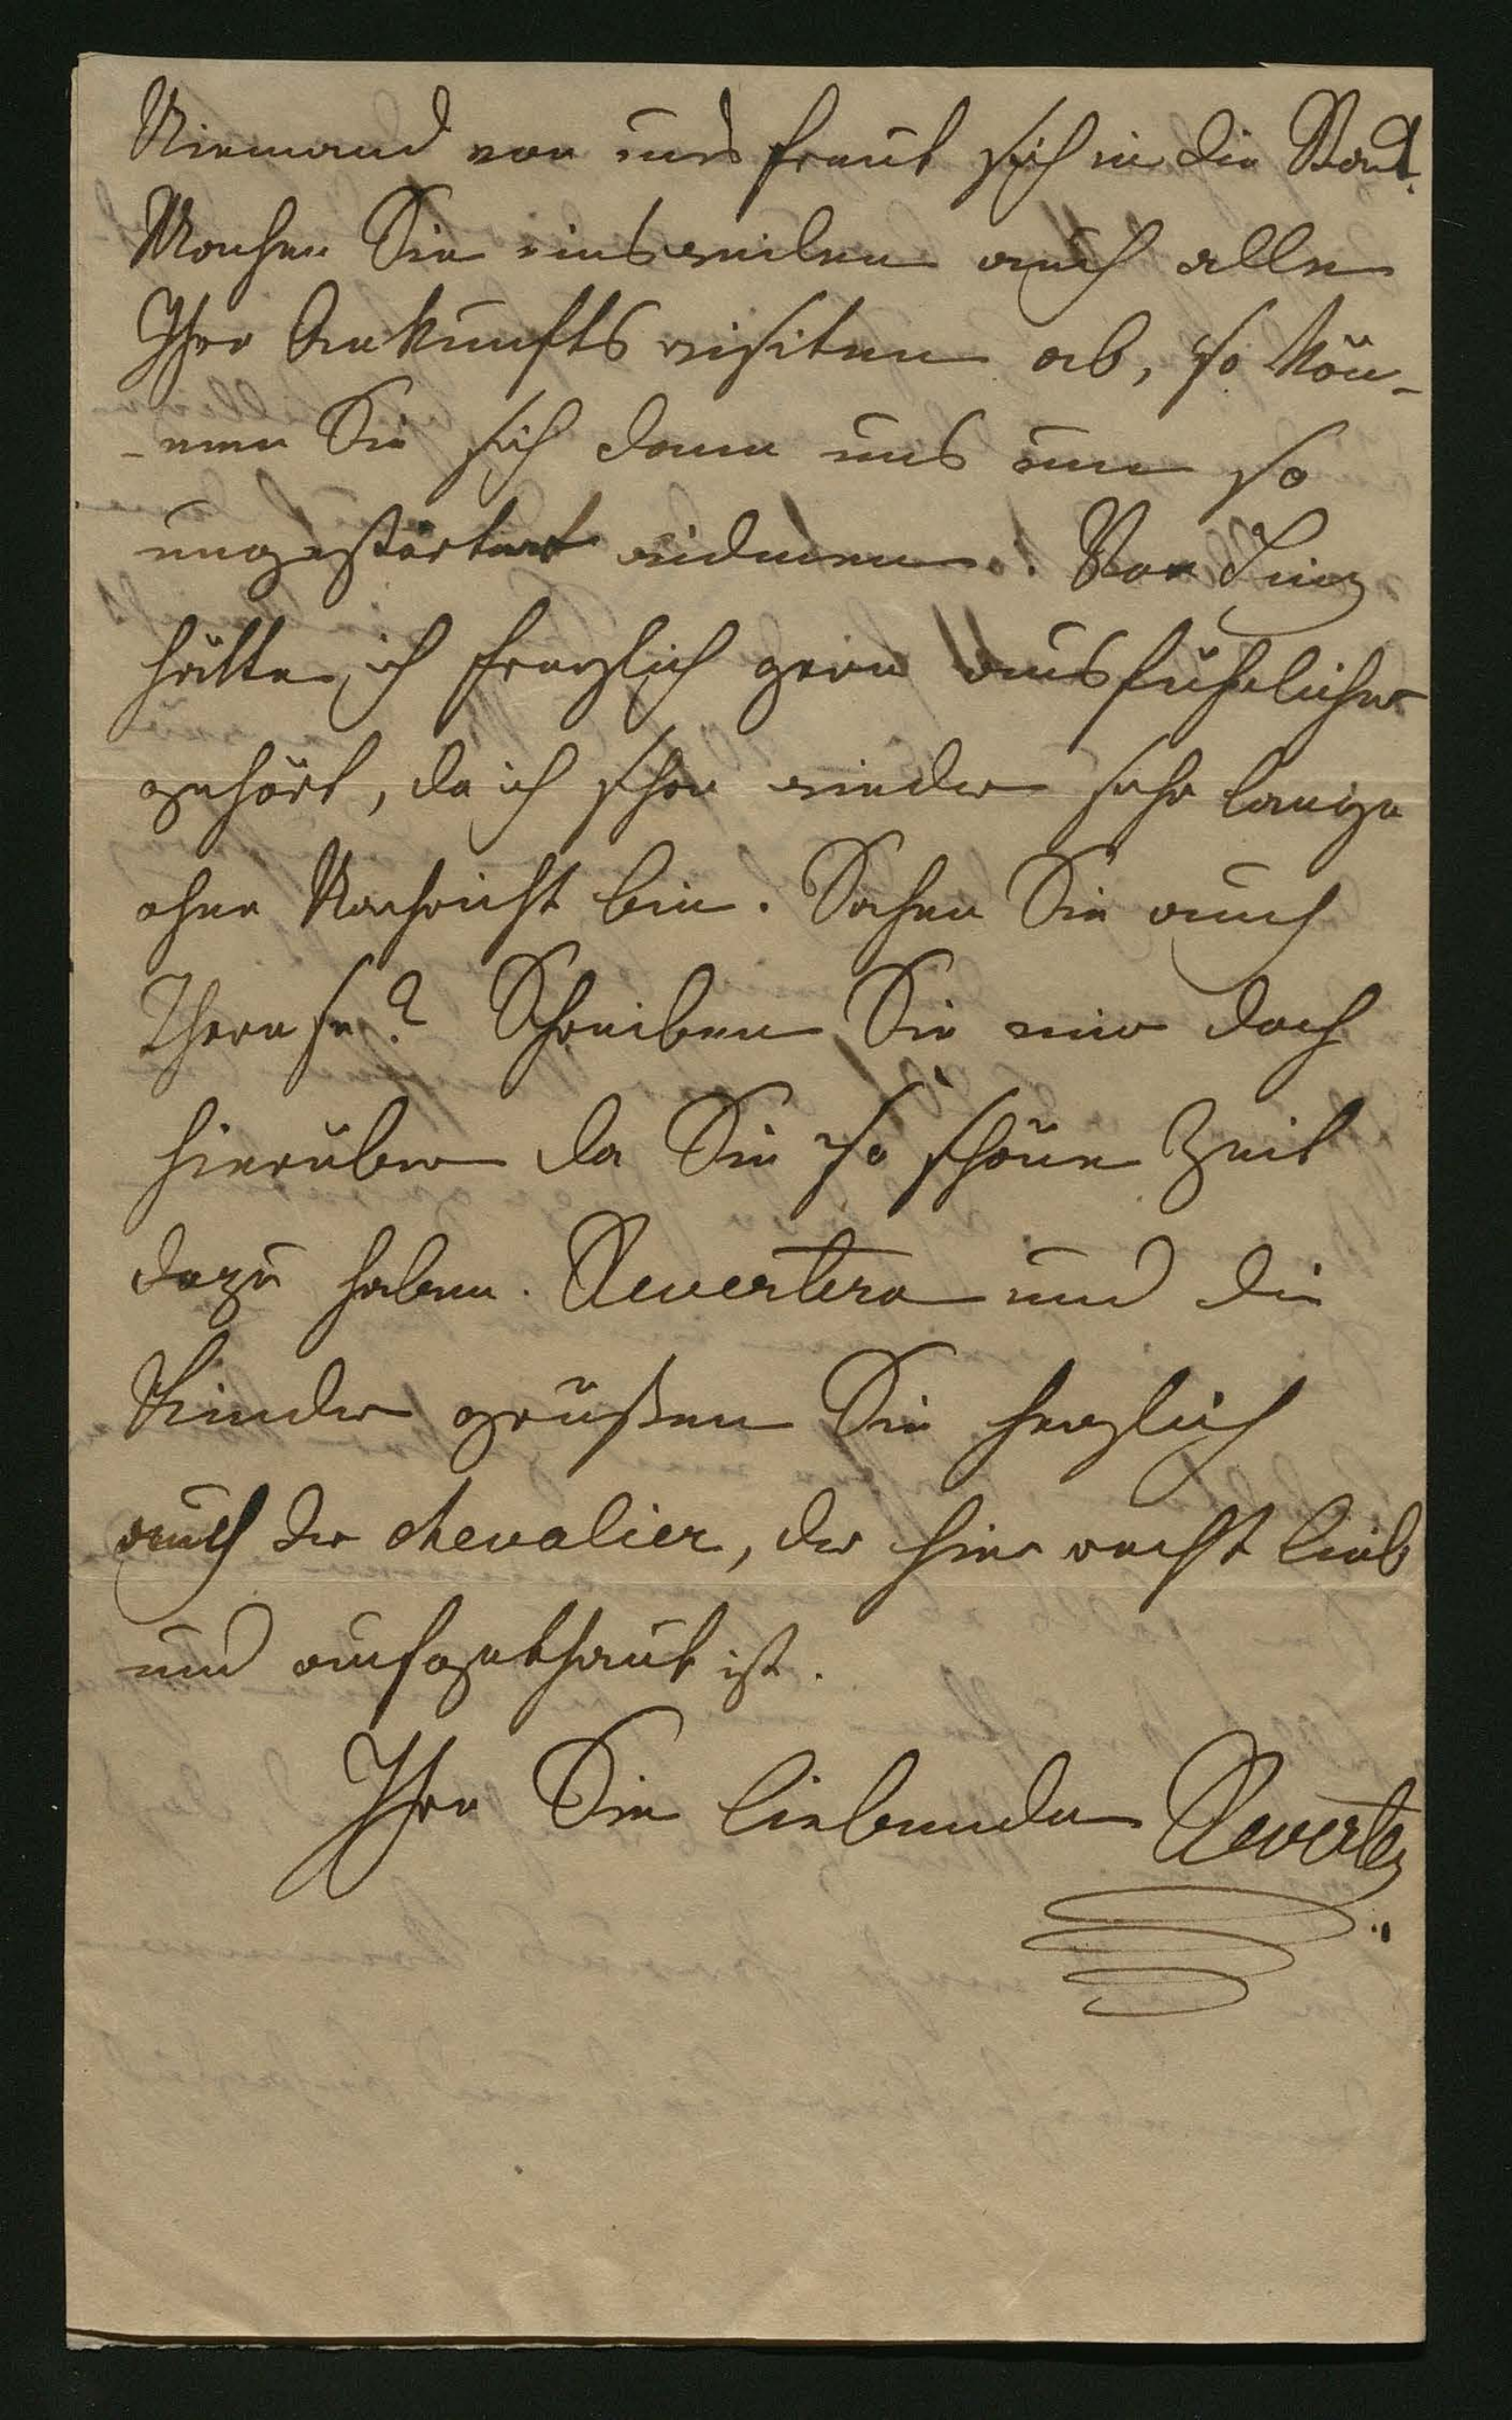 Niemand von uns freut sich in die Stadt.
Machen Sie einstweilen auch alle
Ihre Ankunftsvisiten ab, so kön-
-nen Sie sich dann uns um so
ungestörter widmen. Von Linz
hätte ich herzlich gern ausführlicher
gehört, da ich schon wieder sehr lange
ohne Nachricht bin. Sahen Sie auch
Therese? Schreiben Sie mir doch
hierüber da Sie so schöne Zeit
dazu haben. Revertera und die
Kinder grüßen Sie herzlich
auch der chevalier, der hier recht lieb
und aufgethaut ist.
Ihre Sie liebende Reverta